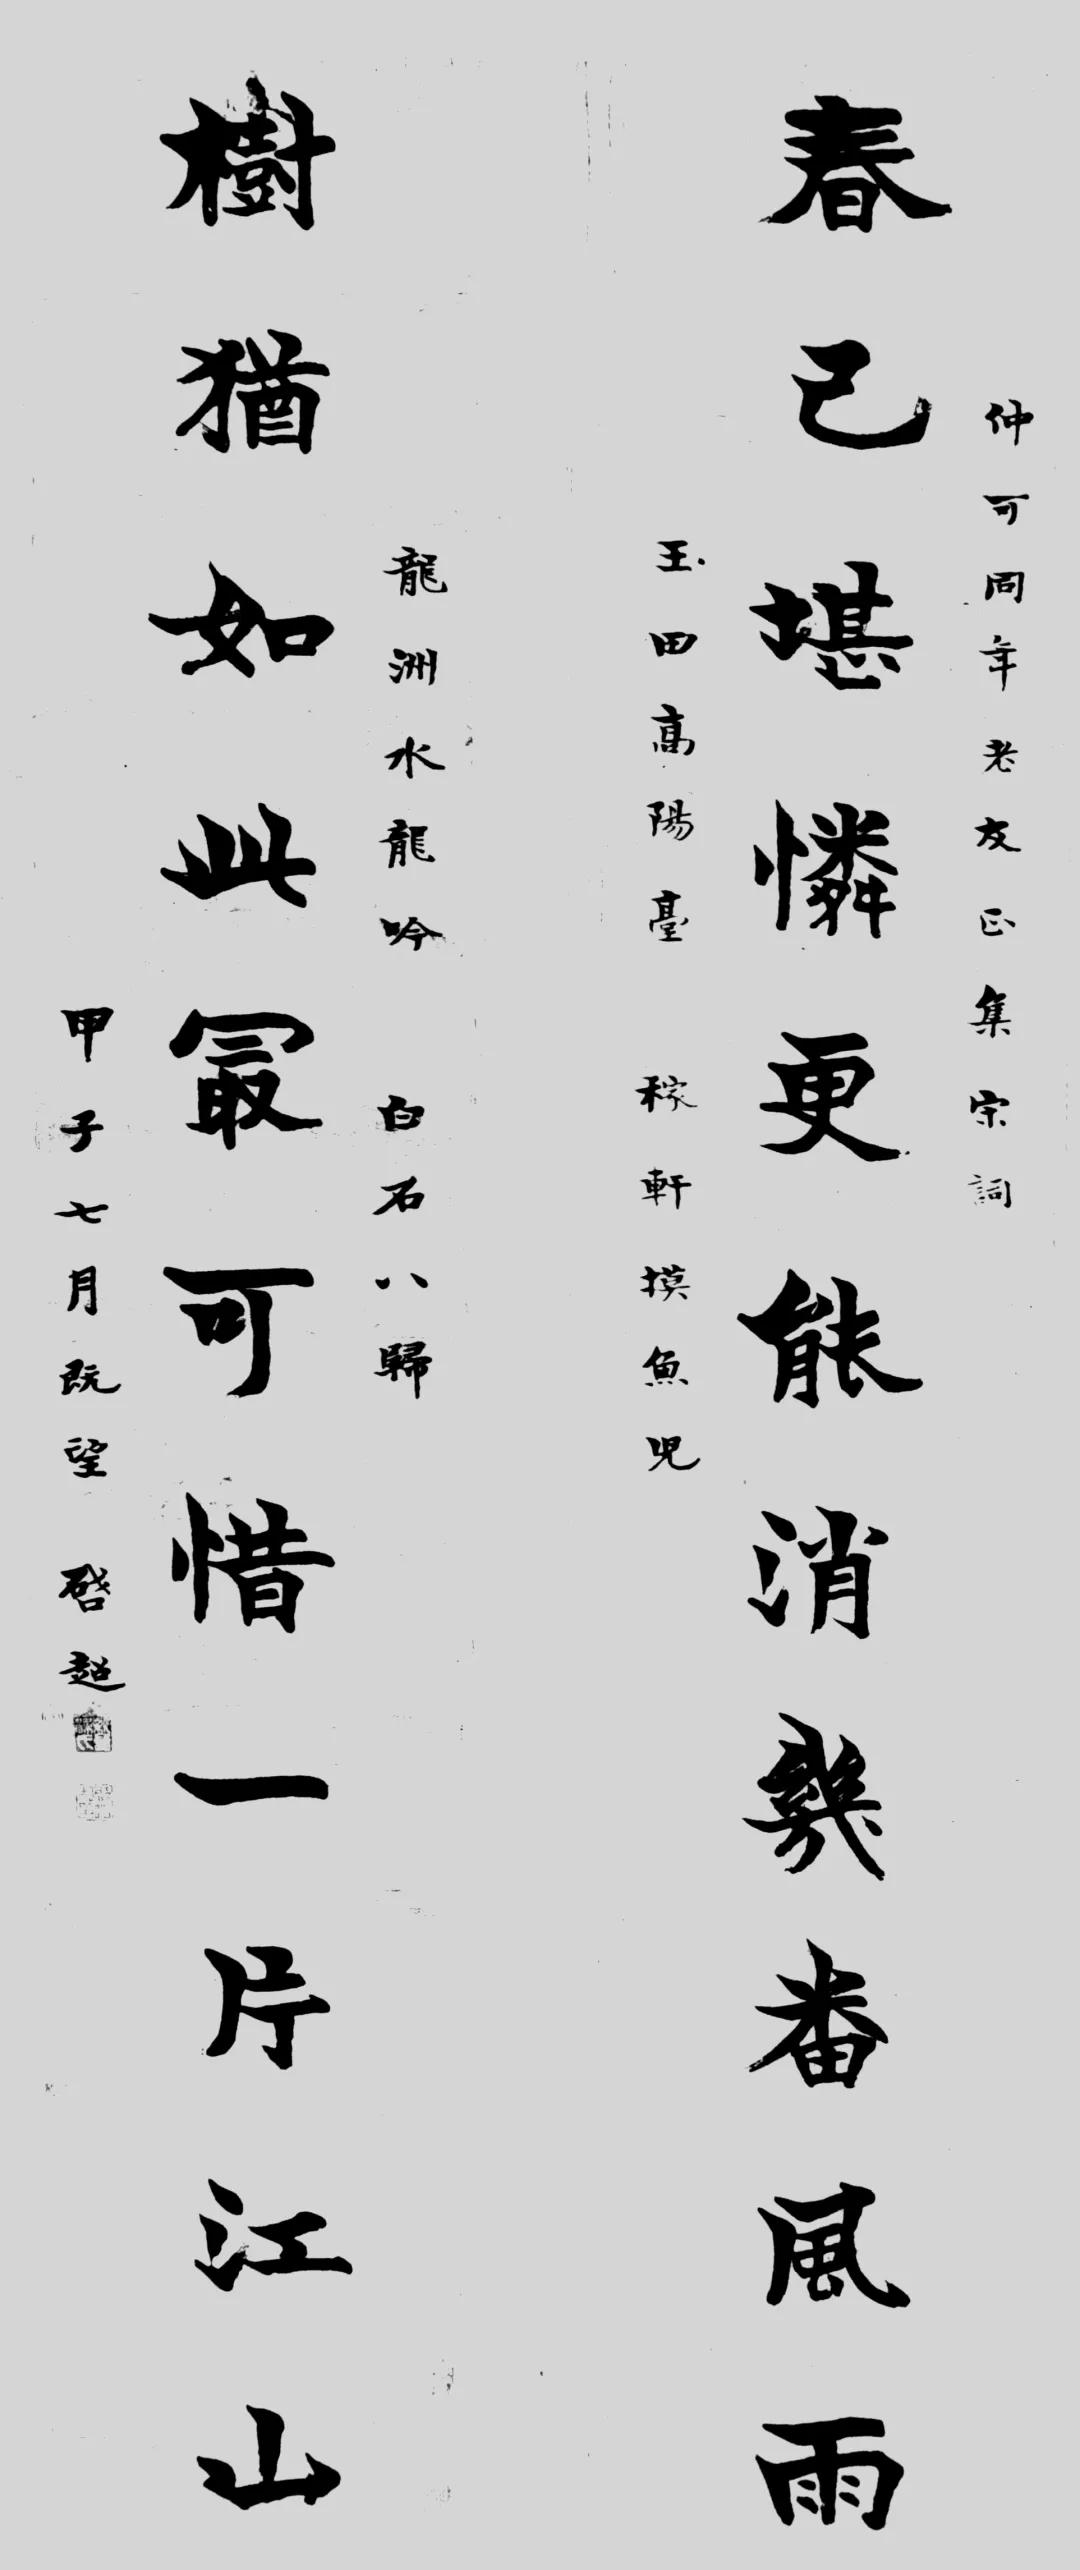 仲可同年老友正集宋詞
春已堪憐更能消幾番風雨
玉田高陽臺　稼軒摸魚兒
龍洲水龍吟　白石八歸
樹猶如此最可惜一片江山
甲子七月既望　啓超